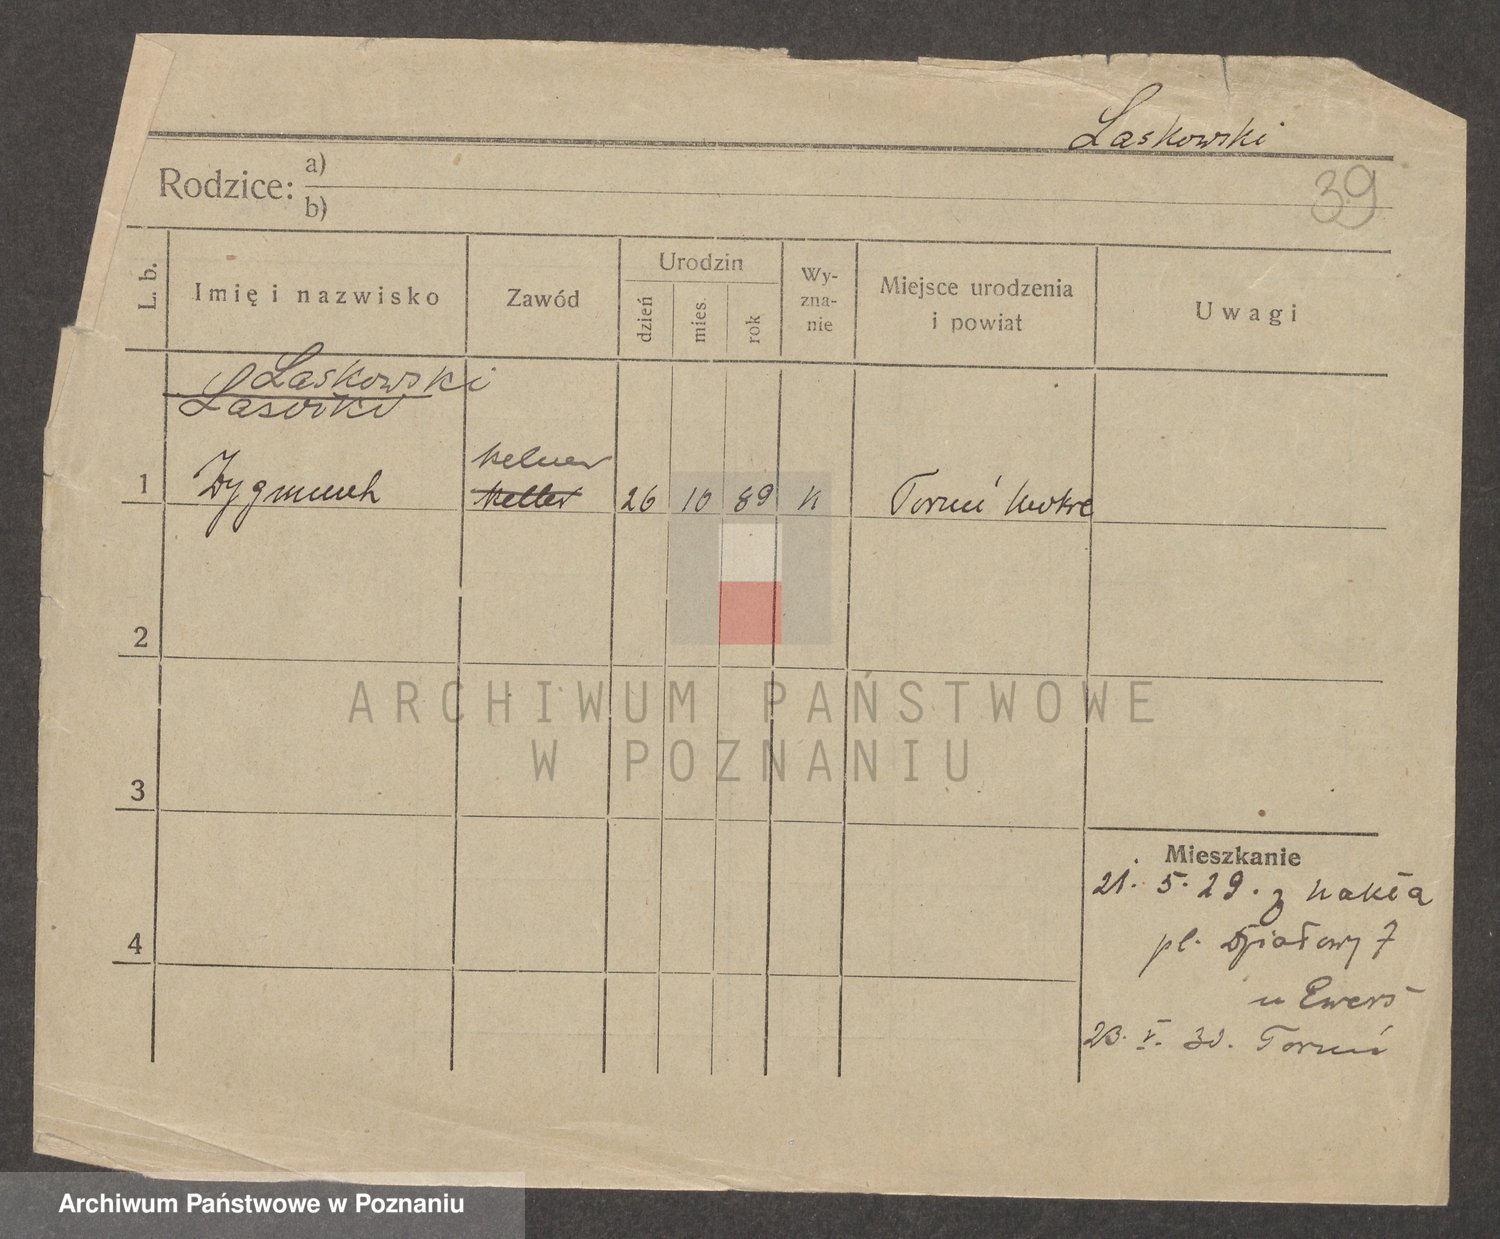 Laskowski
39
Rodzice: a)
b)
L. b.
Imię i nazwisko
Zawód
Urodzin
dzień
mies.
rok
Wy-
zna-
nie
Miejsce urodzenia
i powiat
Uwagi
Laskowski
kelner
1 Zygmunt keller 26 10 89 k Toruń Mokre
2
3
4
Mieszkanie
21. 5. 29. z Nakła
pl. Działowy 7
u Ewers
23. V. 30. Toruń
ARCHIWUM PAŃSTWOWE
W POZNANIU
Archiwum Państwowe w Poznaniu